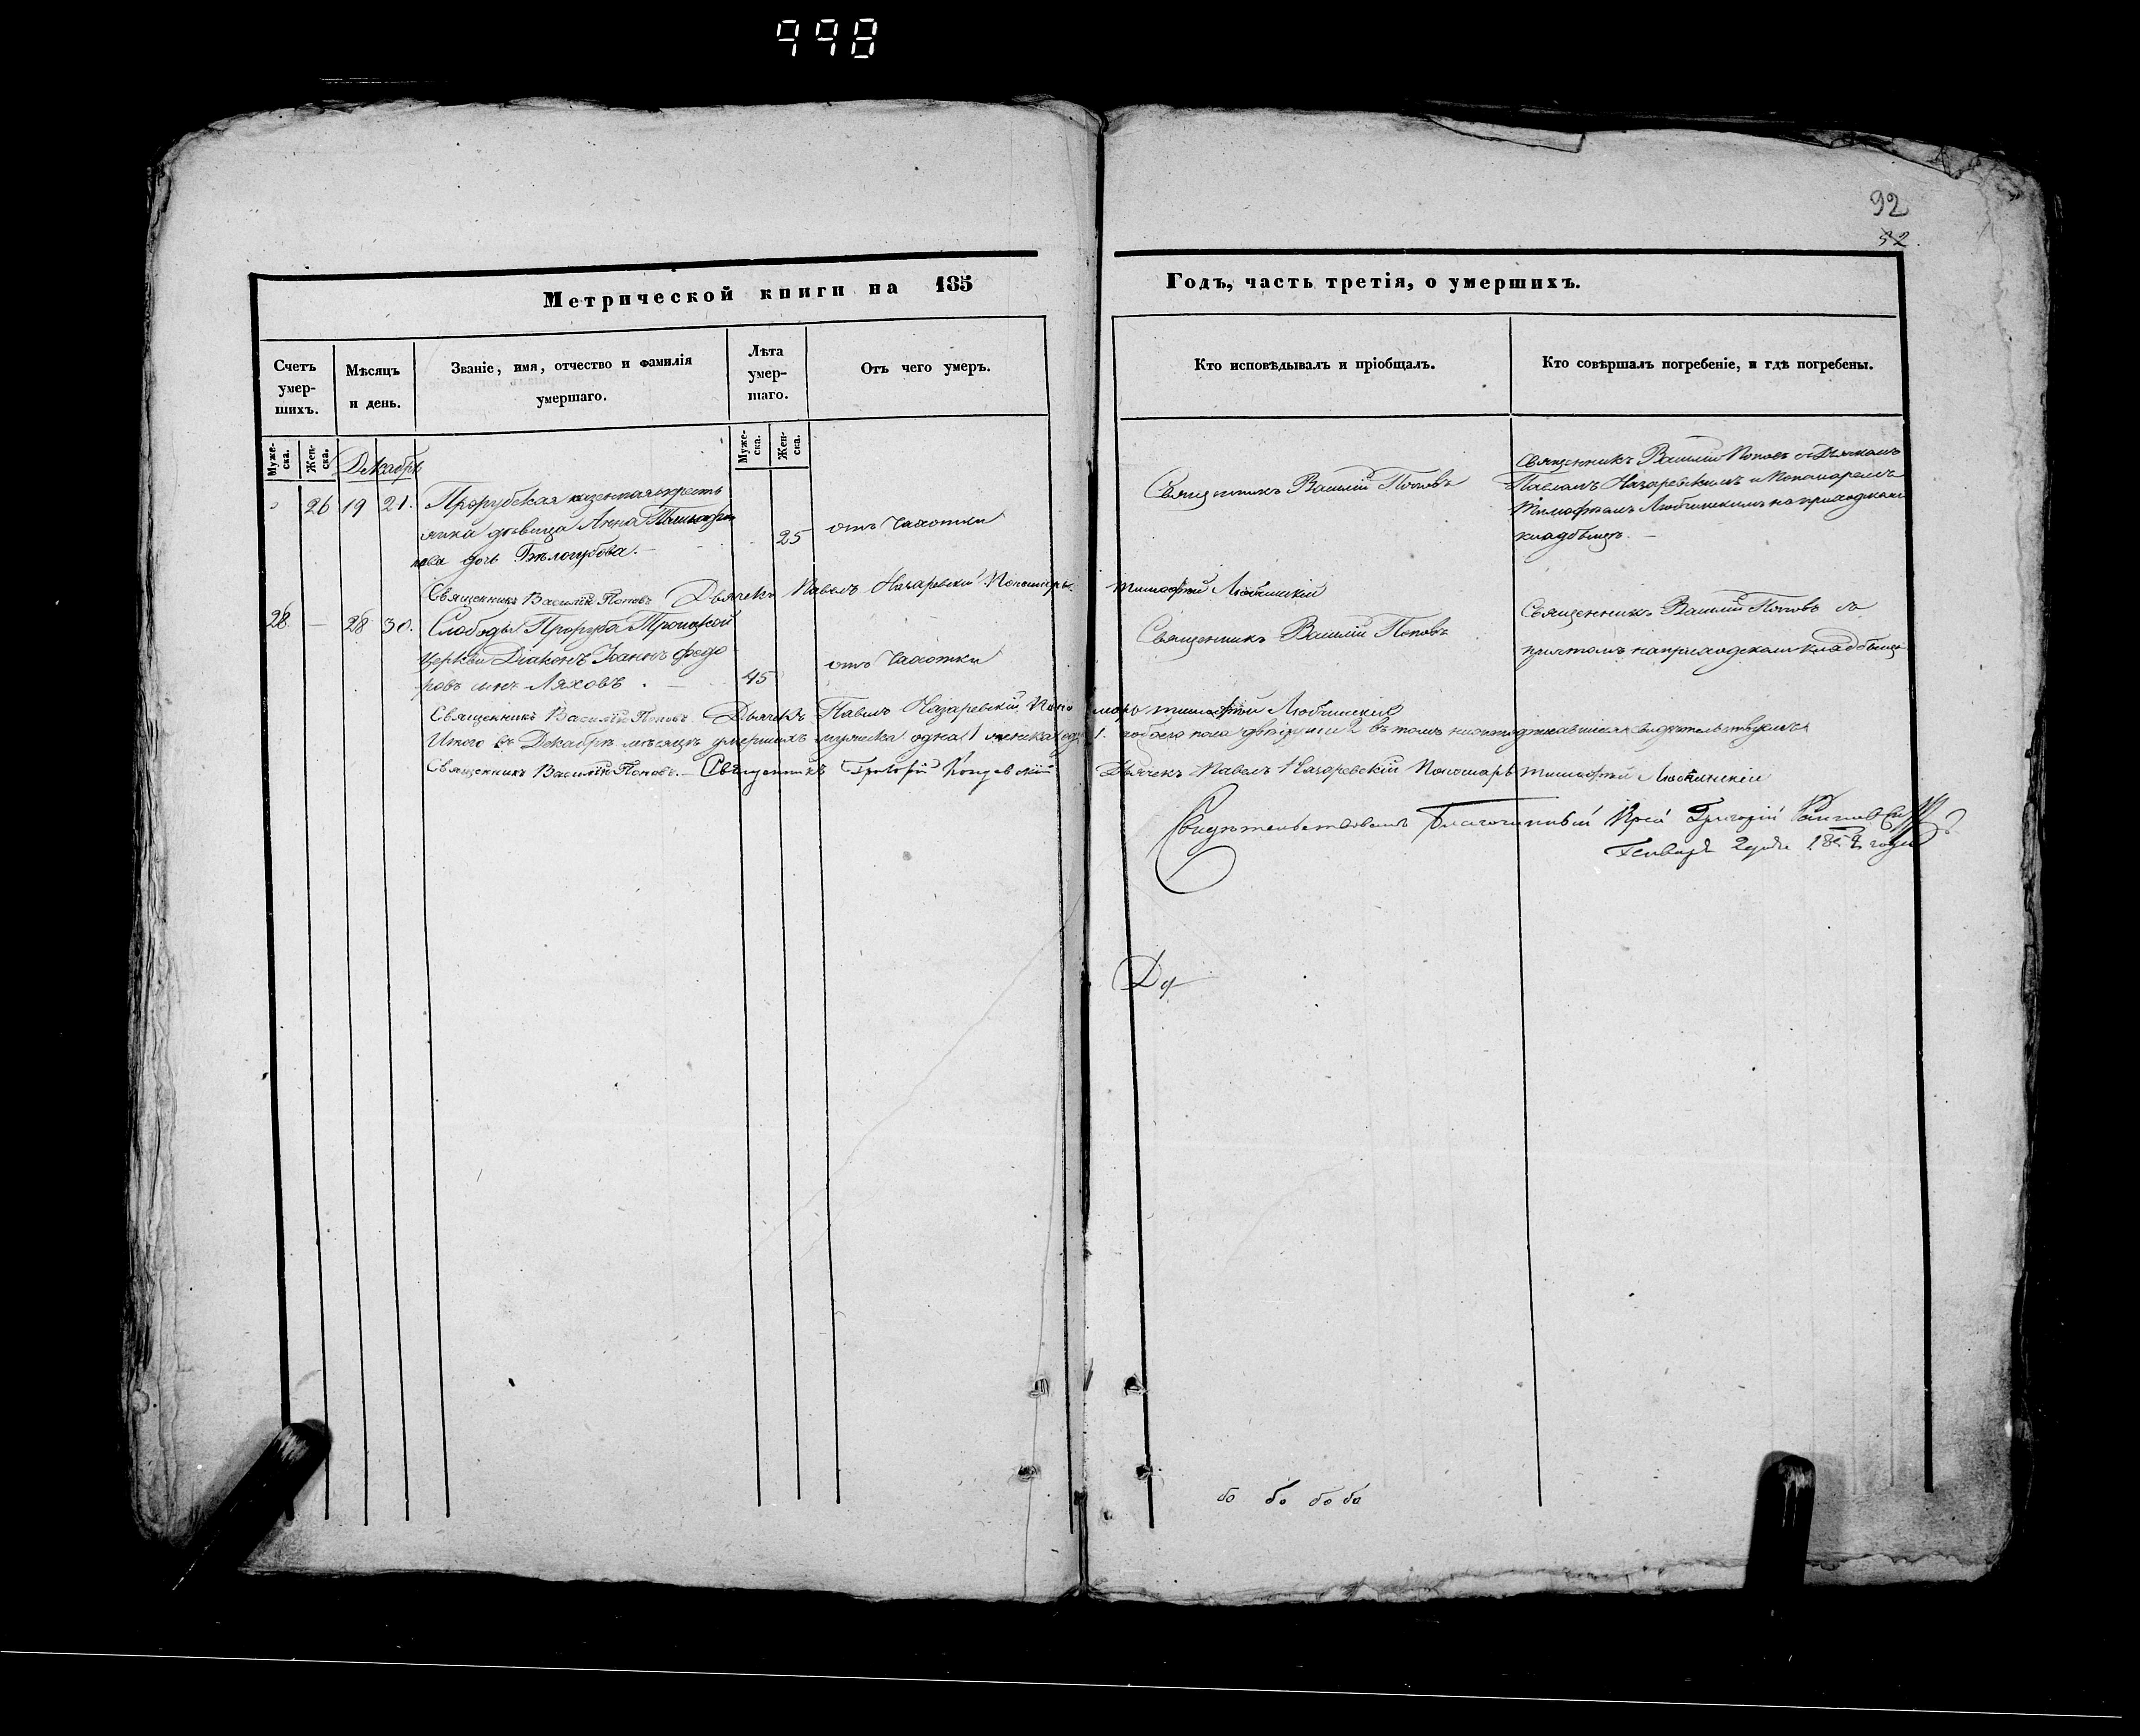 998
92
32.
Метрической книги на 185 Годъ, часть третія, о умершихъ.
Счетъ умер-шихъ.
Мѣсяцъ и день.
Званіе, имя, отчество и фамилія умершаго.
Лѣта умер-шаго.
Отъ чего умеръ.
Кто исповѣдывалъ и пріобщалъ.
Кто совѣршалъ погребеніе, и гдѣ погребены.
Муже-ска.
Жен-ска.
Муже-ска.
Жен-ска.
Декабрь
26 19 21. Прорубская казенная кресть
янка дѣвица Анна Тимофѣ
ева дочь Бѣлогубова.
25
отъ чахотки
Священникъ Василій Поповъ
Священникъ Василій Поповъ съ Дьячкомъ
Павломъ Назаревскимъ и Пономаремъ
Тимофѣемъ Любинскимъ на приходскомъ
кладбищѣ.
Священникъ Василій Поповъ Дьячекъ Павелъ Назаревскій Пономарь Тимофей Любинскій
28 — 28 30. Слободы Проруба Троицкой
церкви Діаконъ Іоаннъ Федо
ровъ сынъ Ляховъ.
45
отъ чахотки
Священникъ Василій Поповъ
Священникъ Василій Поповъ съ
причтомъ на приходскомъ кладбищѣ
Священникъ Василій Поповъ Дьячекъ Павелъ Назаревскій Пономарь Тимофей Любинскій
Итого въ Декабрѣ мѣсяцѣ умершихъ мужеска одна 1 женска одна 1. обоего пола двѣ души 2 въ томъ свидѣтельствуемъ
Священникъ Василій Поповъ. Священникъ Григорій Дьячекъ Павелъ Назаревскій Пономарь Тимофей Любинскій
Свидѣтельствовалъ Благочинный Іерей Григорій
Генваря 2 дня 185 года
До
бо бо бо бо